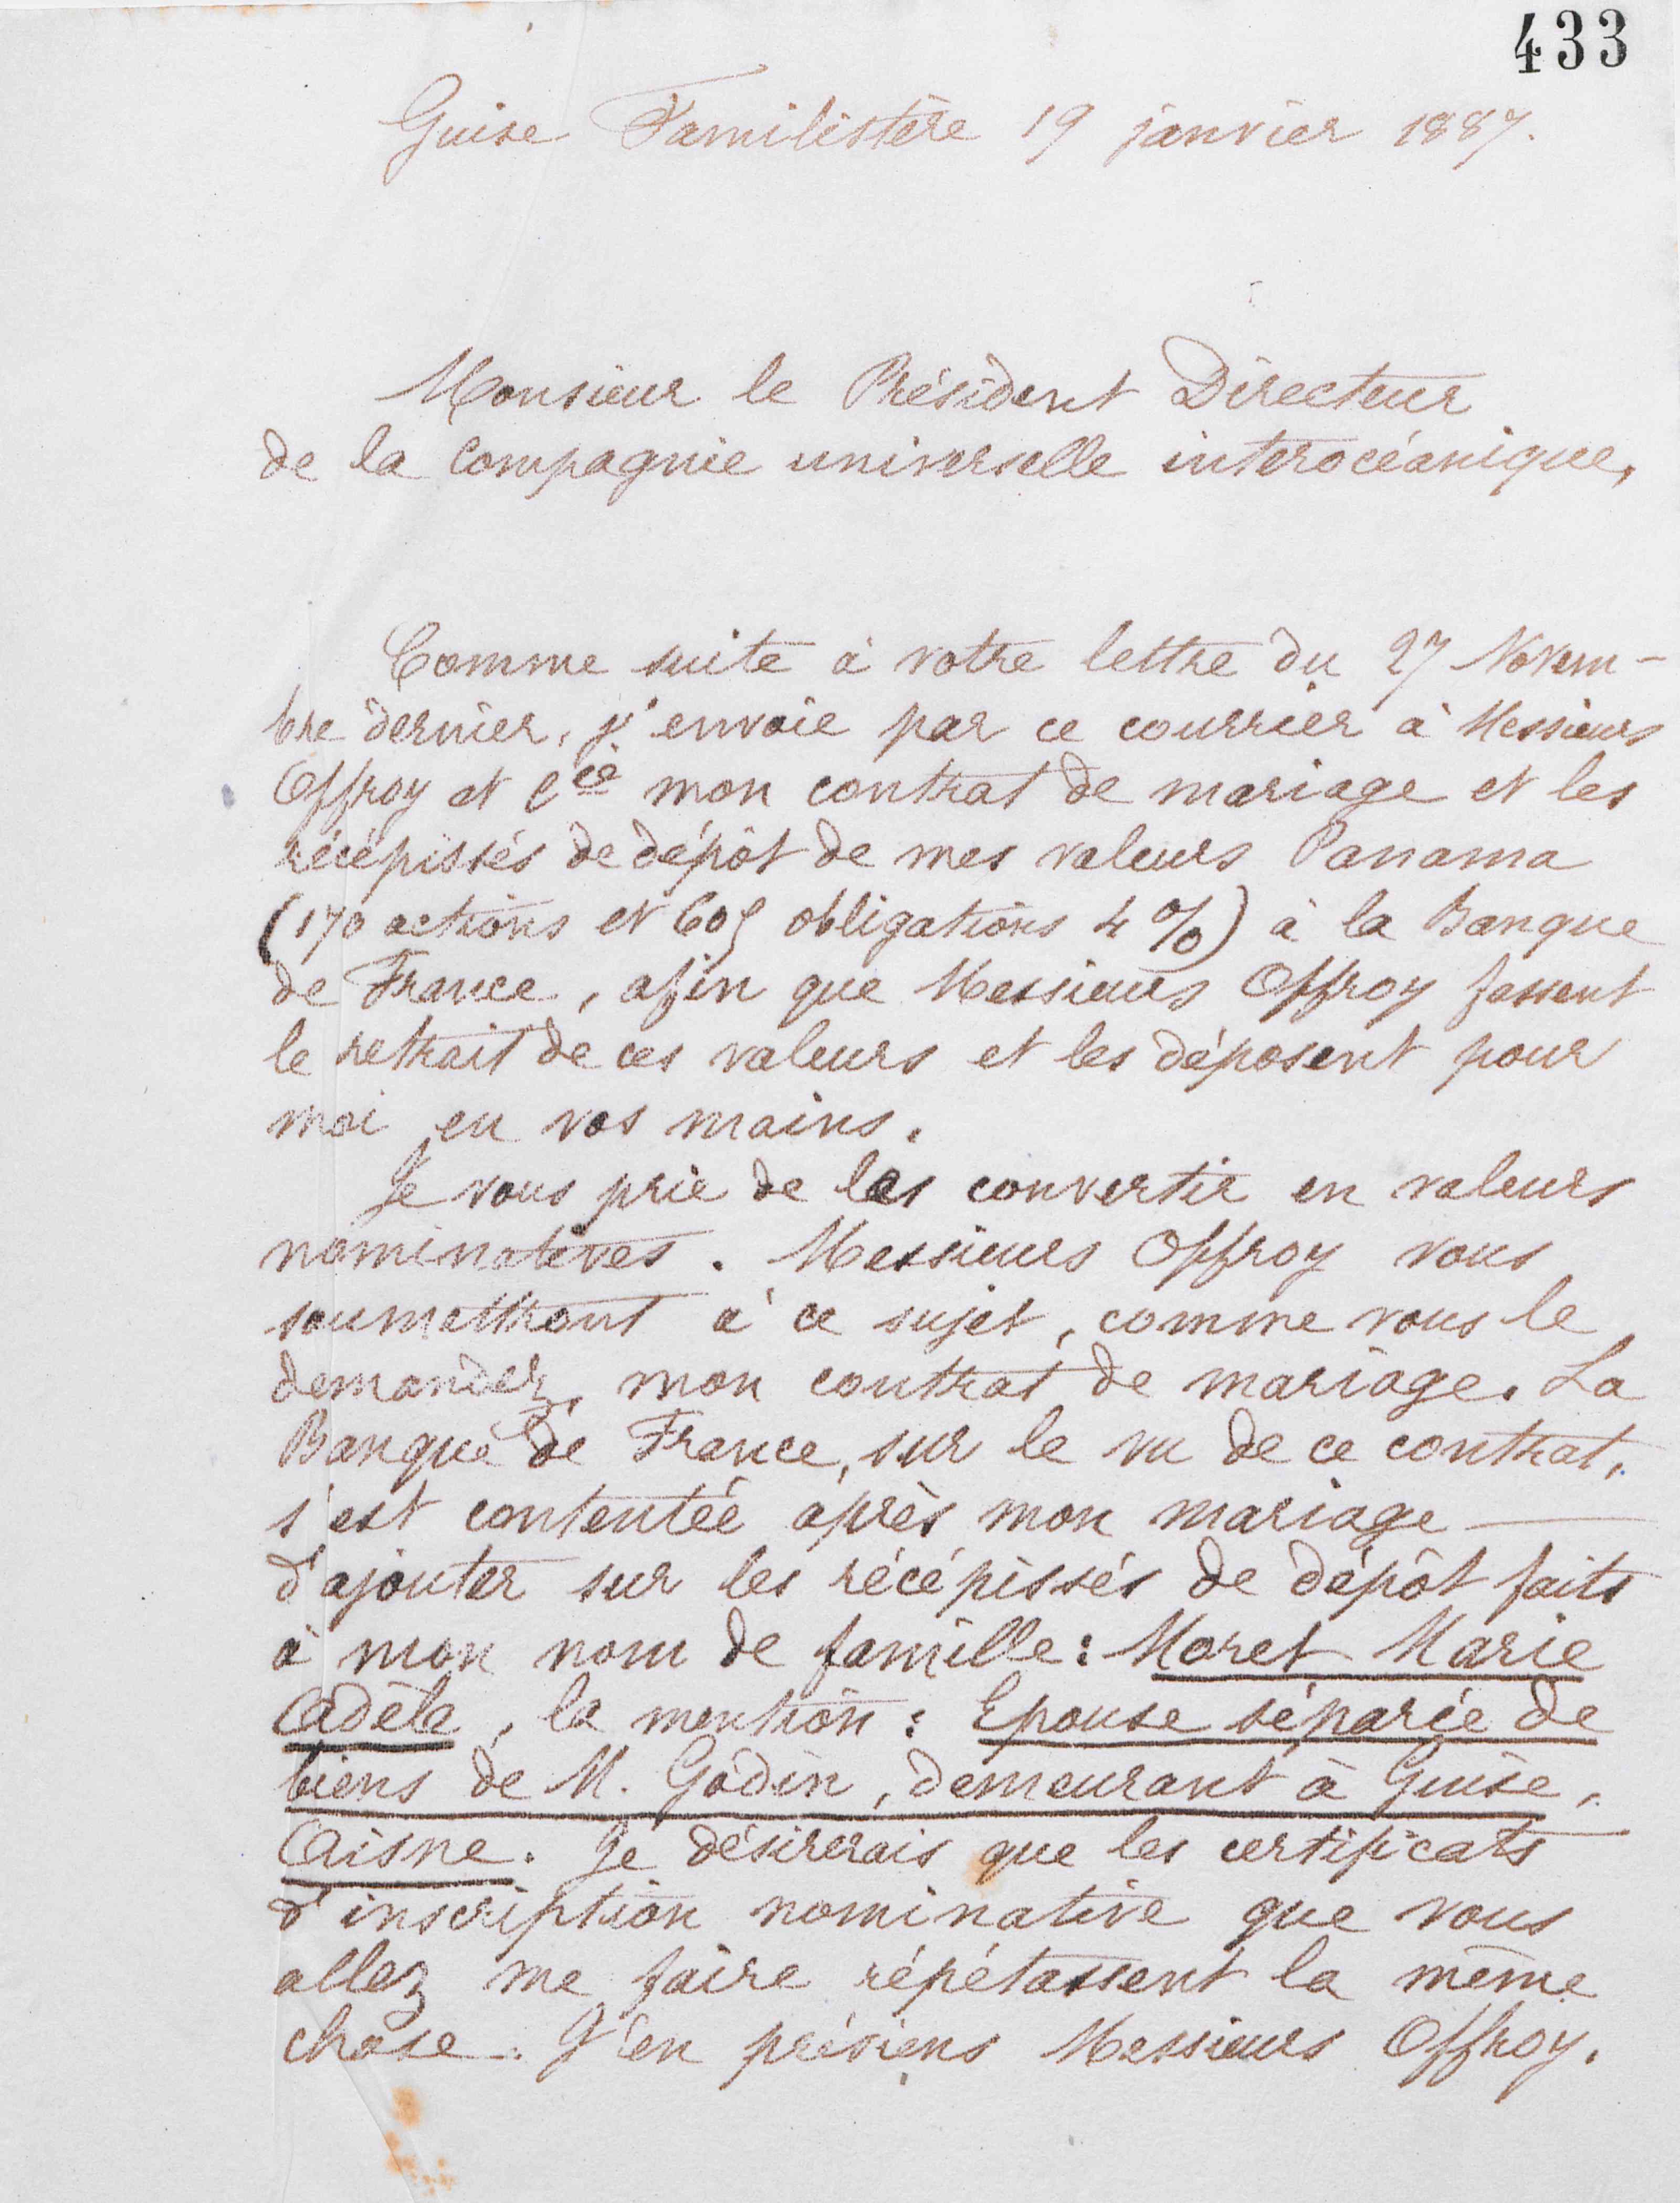 433
Guise Familistère 19 janvier 1887.
Monsieur le Président Directeur
de la Compagnie universelle interocéanique,
Comme suite à votre lettre du 27 Novem-
bre dernier, j'envoie par ce courrier à Messieurs
Offroy et Cie mon contrat de mariage et les
récépissés de dépôt de mes valeurs Panama
(170 actions et 605 obligations 4 %) à la Banque
de France, afin que Messieurs Offroy fassent
le retrait de ces valeurs et les déposent pour
moi en vos mains.
Je vous prie de les convertir en valeurs
nominatives. Messieurs Offroy vous
soumettront à ce sujet, comme vous le
demandez, mon contrat de mariage. La
Banque de France, sur le vu de ce contrat,
s'est contentée après mon mariage
d'ajouter sur les récépissés de dépôt faits
à mon nom de famille : Moret Marie
Adèle, la mention : Epouse séparée de
biens de M. Godin, demeurant à Guise,
Aisne. Je désirerais que les certificats
d'inscription nominative que vous
allez me faire répétassent la même
chose. J'en préviens Messieurs Offroy.